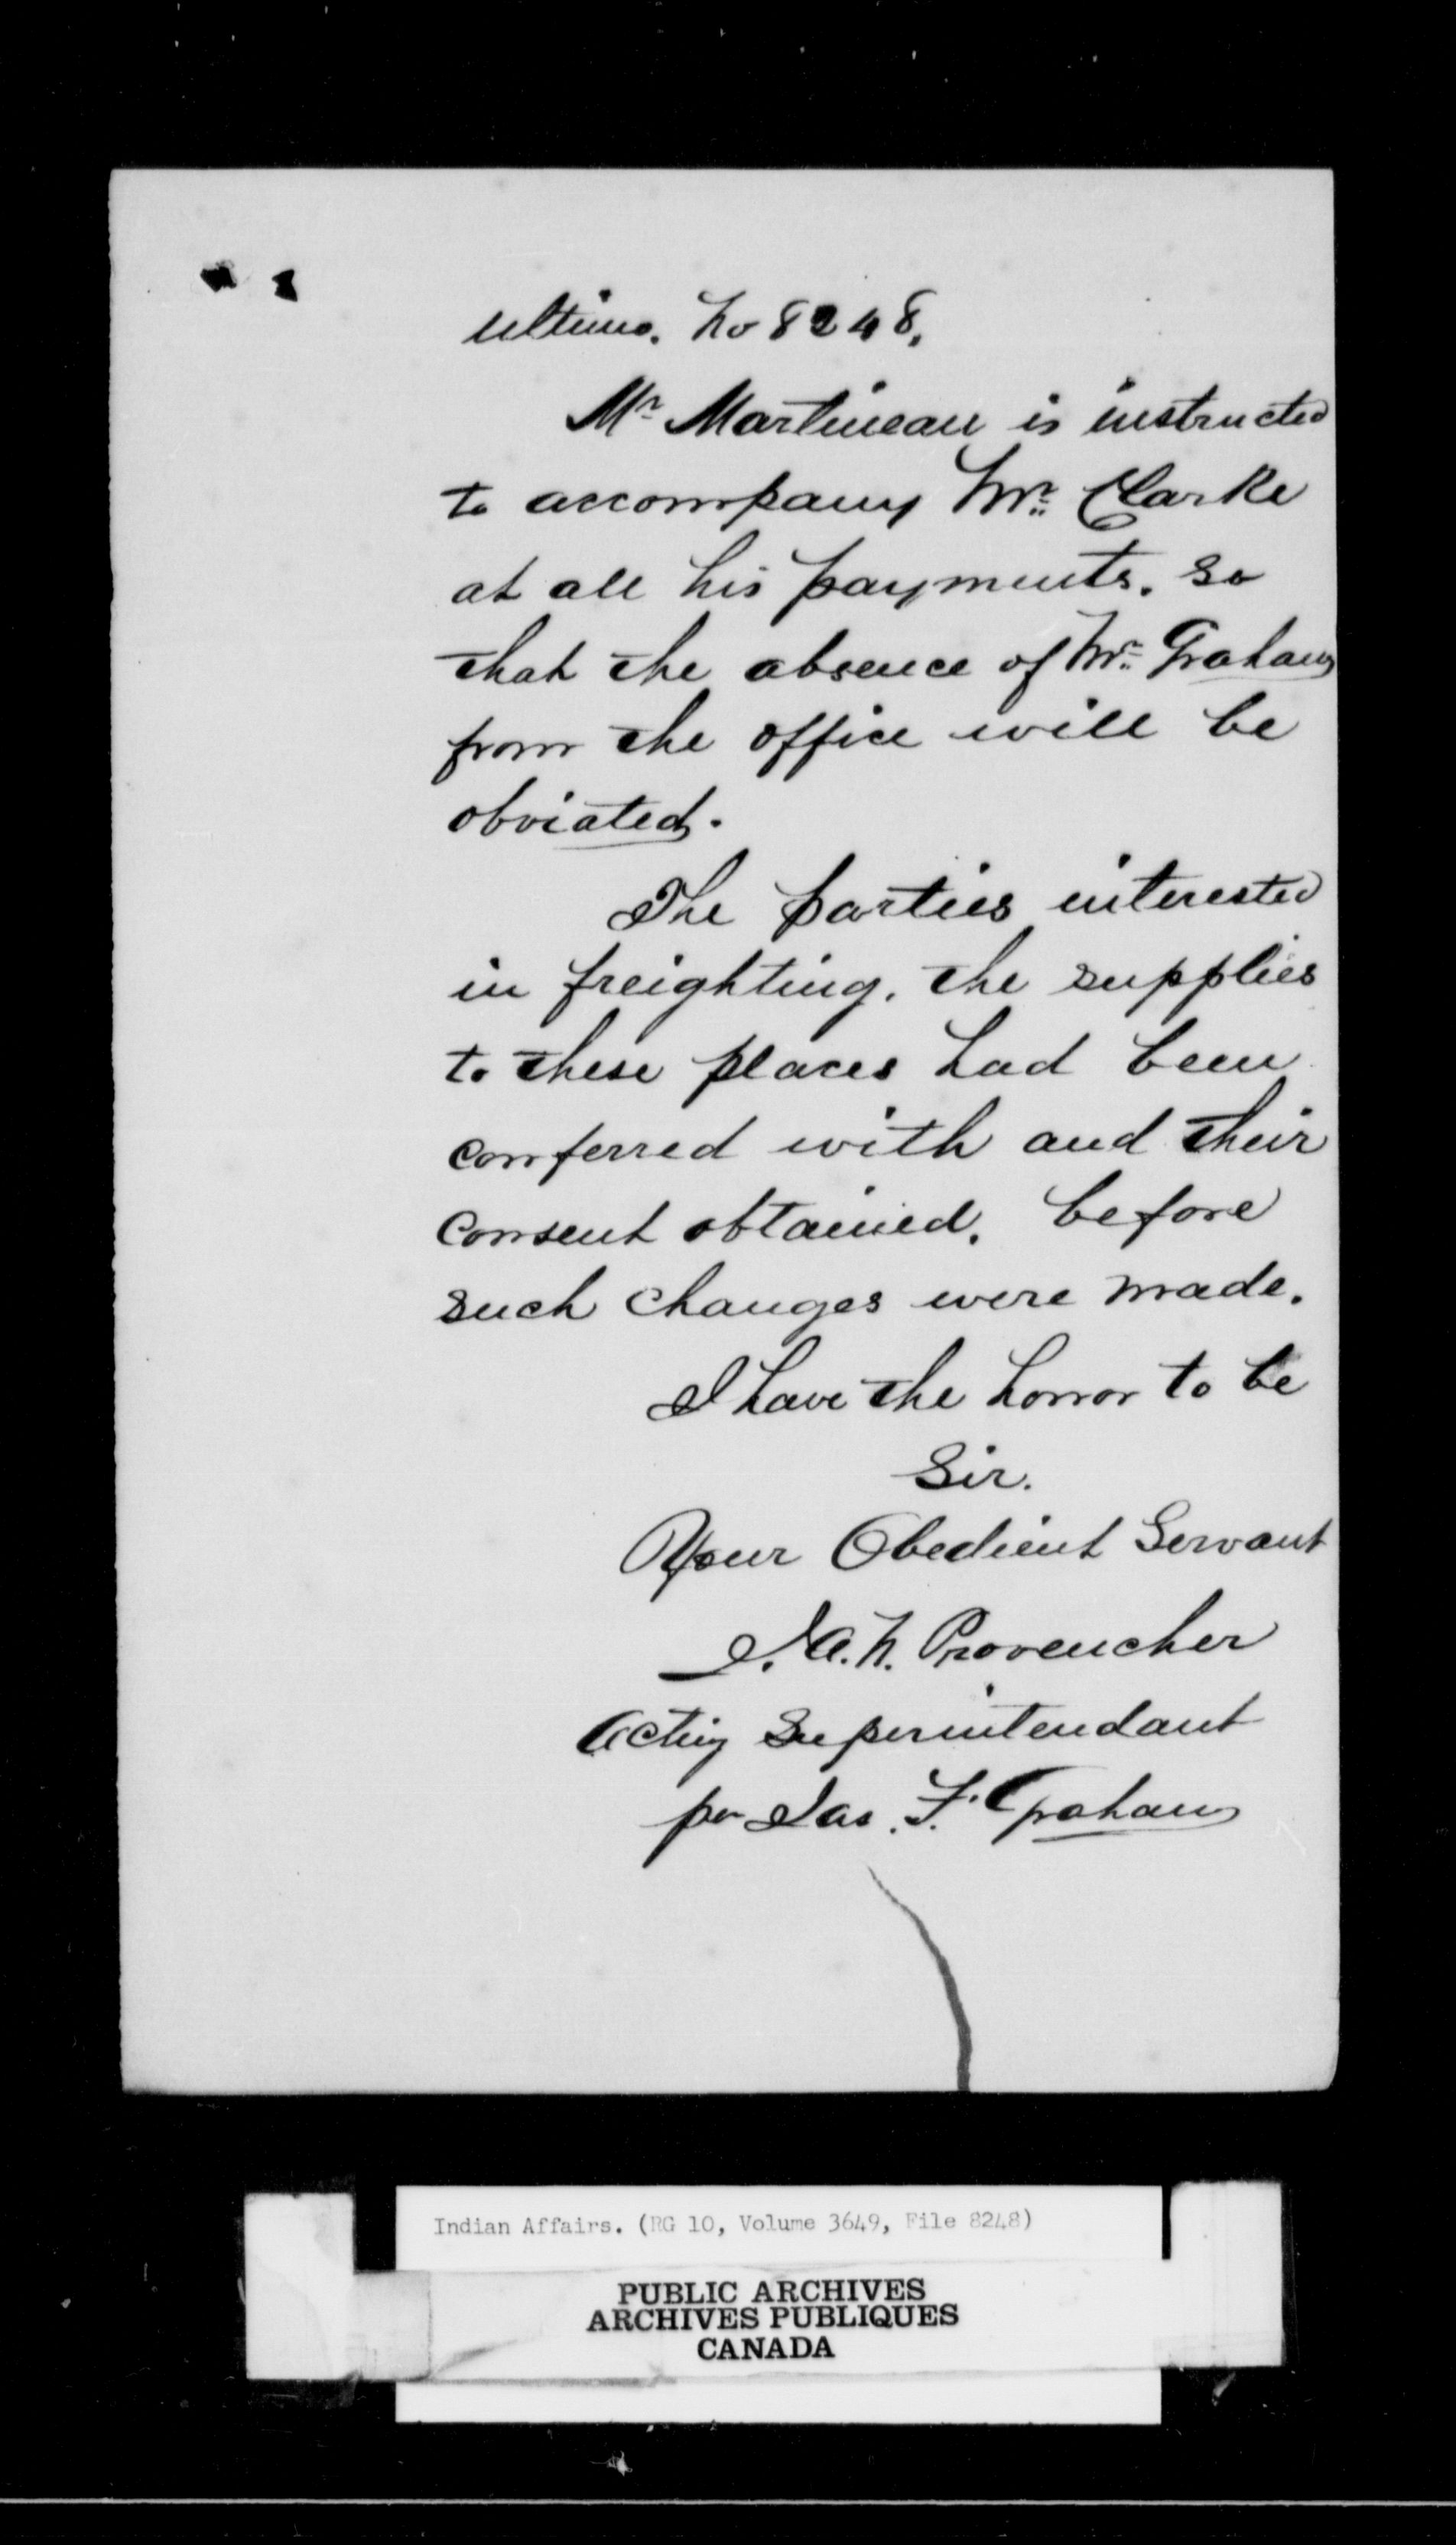 ultimo. No 8248.
Mr Martineau is instructed
to accompany Mr. Clarke
at all his payments. so
that the absence of Mr. Graham
from the office will be
obviated.
The parties interested
in freighting. the supplies
to these places had been
conferred with and their
consent obtained. before
such changes were made.
I have the honor to be
Sir.
Your Obedient Servant
J. A. N. Provencher
Acting Superintendant
per Jas. F. Graham
Indian Affairs. (RG 10, Volume 3649, File 8248)
PUBLIC ARCHIVES
ARCHIVES PUBLIQUES
CANADA